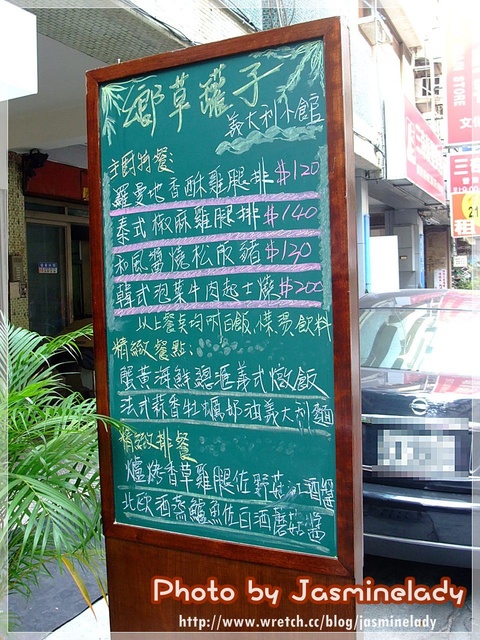 鄉草罐子
義大利小館
主廚特餐:
羅曼地香酥雞腿排$120
泰式椒麻雞腿排$140
和風醬燒松阪豬$120
韓式泡菜牛肉起士燒$200
以上餐點均附白飯,例湯,飲料
精緻餐點:
蟹黃海鮮總滙義式燉飯
法式蒜香牡蠣奶油義大利麵
精緻排餐
爐烤香草雞腿佐野菇紅酒醬
北歐酒蒸鱸魚佐白酒蘑菇醬
STORE
租
Photo by Jasminelady
http://www.wretch.cc/blog/jasminelady